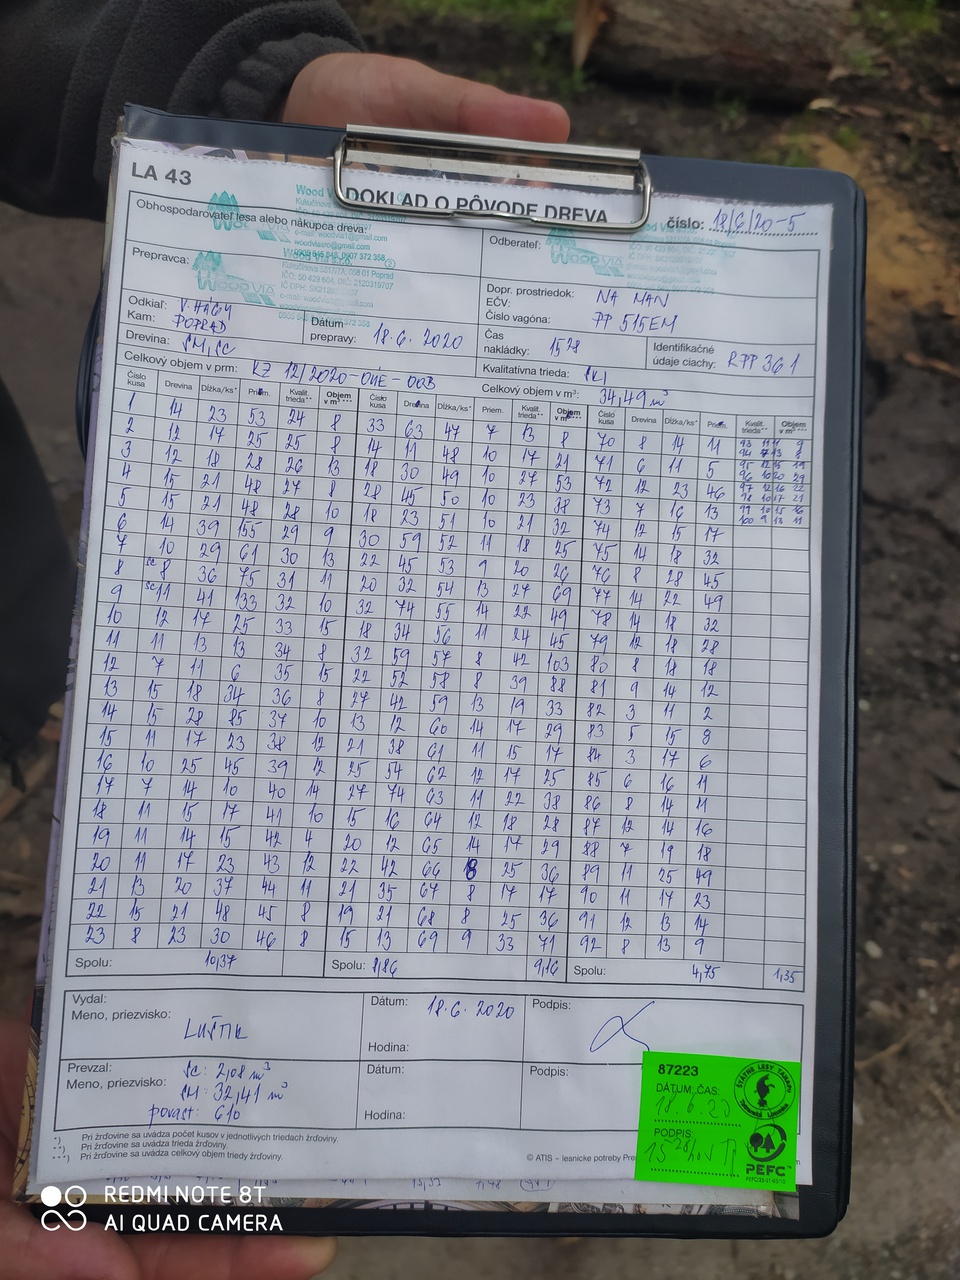 LA 43
DOKLAD O PÔVODE DREVA
číslo: 18/6/20-5
Obhospodarovateľ lesa alebo nákupca dreva:
Odberateľ:
Prepravca:
Dopr. prostriedok: NA MAN
EČV:
Číslo vagóna: PP 515EM
Odkiaľ: V. HÁGY
Kam: POPRAD
Dátum prepravy: 18.6.2020
Čas nakládky: 15 28
Identifikačné údaje ciachy: RPP361
Drevina: SM, SC
Kvalitatívna trieda:
Celkový objem v prm:
Celkový objem v m³: 34,49 m³
Číslo kusa Drevina Dĺžka/ks* Priem. Kvalit. trieda** Objem v m³*** Číslo kusa Drevina Dĺžka/ks* Priem. Kvalit. trieda** Objem v m³*** Číslo kusa Drevina Dĺžka/ks* Priem. Kvalit. trieda** Objem v m³***
1 14 23 53 24 8 33 63 47 7 13 8 70 8 14 11
2 12 17 25 25 8 14 11 48 10 17 21 71 6 11 5
3 12 18 28 26 13 18 30 49 10 27 53 72 12 23 46
4 15 21 48 27 8 28 45 50 10 23 38 73 7 16 13
5 15 21 48 28 10 18 23 51 10 21 32 74 12 15 17
6 14 39 155 29 9 30 59 52 11 18 25 75 14 18 32
7 10 29 61 30 13 22 45 53 9 20 26 76 8 28 45
8 sc 8 36 75 31 11 20 32 54 13 27 69 77 14 22 49
9 sc 11 41 133 32 10 32 74 55 14 22 49 78 14 18 32
10 12 17 25 33 15 18 34 56 11 24 45 79 12 18 28
11 11 13 13 34 8 32 59 57 8 42 103 80 8 18 18
12 7 11 6 35 15 22 52 58 8 39 88 81 9 14 12
13 15 18 34 36 8 27 42 59 13 19 33 82 3 11 2
14 15 28 85 37 10 13 12 60 14 17 29 83 5 15 8
15 11 17 23 38 12 21 38 61 11 15 17 84 3 17 6
16 10 25 45 39 12 25 54 62 12 17 25 85 6 16 11
17 7 14 10 40 14 27 74 63 11 22 38 86 8 14 11
18 11 15 17 41 10 15 16 64 12 18 28 87 12 14 16
19 11 14 15 42 4 20 12 65 14 17 29 88 7 19 18
20 11 17 23 43 12 22 42 66 8 25 36 89 11 25 49
21 13 20 37 44 11 21 35 67 8 17 17 90 11 17 23
22 15 21 48 45 8 19 21 68 8 25 36 91 12 13 14
23 8 23 30 46 8 15 13 69 9 33 71 92 8 13 9
Spolu: 10,37 Spolu: 8,86 9,16 Spolu: 4,75 1,35
Vydal:
Meno, priezvisko:
Dátum: 18.6.2020
Podpis:
Hodina:
Prevzal:
Meno, priezvisko:
SC: 2,08 m³
SM: 32,41 m³
povast: 610
Dátum:
Podpis:
Hodina:
*) Pri žrďovine sa uvádza počet kusov v jednotlivých triedach žrďoviny.
**) Pri žrďovine sa uvádza trieda žrďoviny.
***) Pri žrďovine sa uvádza celkový objem triedy žrďoviny.
© ATIS – lesnícke potreby
87223
DÁTUM, ČAS:
18.6.20
PODPIS
ŠTÁTNE LESY TANAPu
PEFC
REDMI NOTE 8T
AI QUAD CAMERA